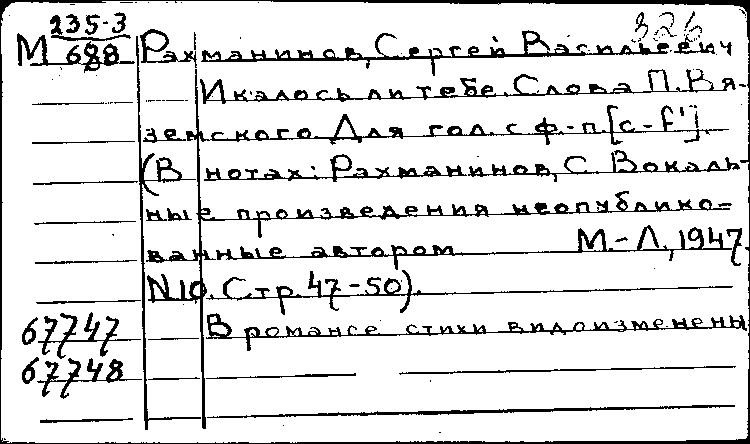 235-3 326
М 688 Рахманинов, Сергей Васильевич
Икалось ли тебе. Слова П. Вя-
земского. Для гол. с ф.-п. [c-f'].
(В нотах: Рахманинов, С. Вокаль-
ные произведения неопублико-
ванные автором М.-Л., 1947.
N10. Стр. 47-50).
67747 В романсе стихи видоизменены
67748